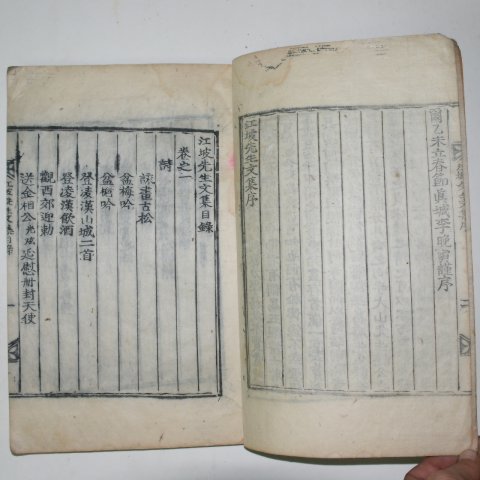 爾乙未立春節眞城李晩寅謹序
江坡先生文集序
江坡先生文集目錄
卷之一
詩
詠畫古松
盆梅吟
盆榴吟
登凌漢山城二首
登凌漢飮酒
觀西郊迎勅
送金相公延慰冊封天使